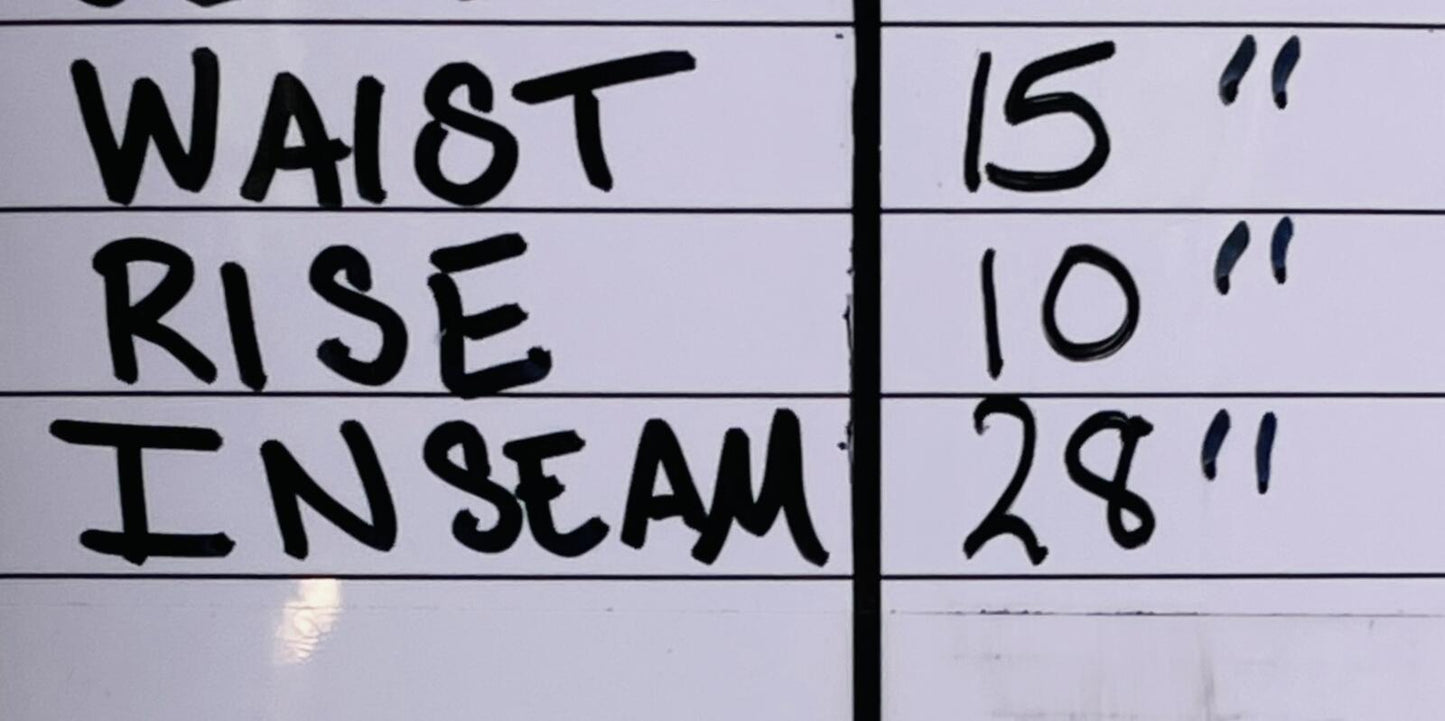 WAIST 15"
RISE 10"
INSEAM 28"